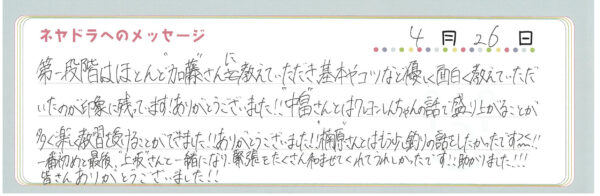 ネヤドラへのメッセージ 4月26日
第一段階はほとんど"加藤"さんに教えていただき、基本やコツなど優しく面白く教えていただ
いたのが印象に残っています!ありがとうございました!!"中冨"さんとはクレヨンしんちゃんの話で盛り上がることが
多く楽しく教習を受けることができました!!ありがとうございました!"楠原"さんとはもう少し釣りの話をしたかったです〜!!
一番初めと最後、"上坂"さんと一緒になり、緊張をたくさん和ませてくれてうれしかったです!!助かりました!!!
皆さんありがとうございました!!